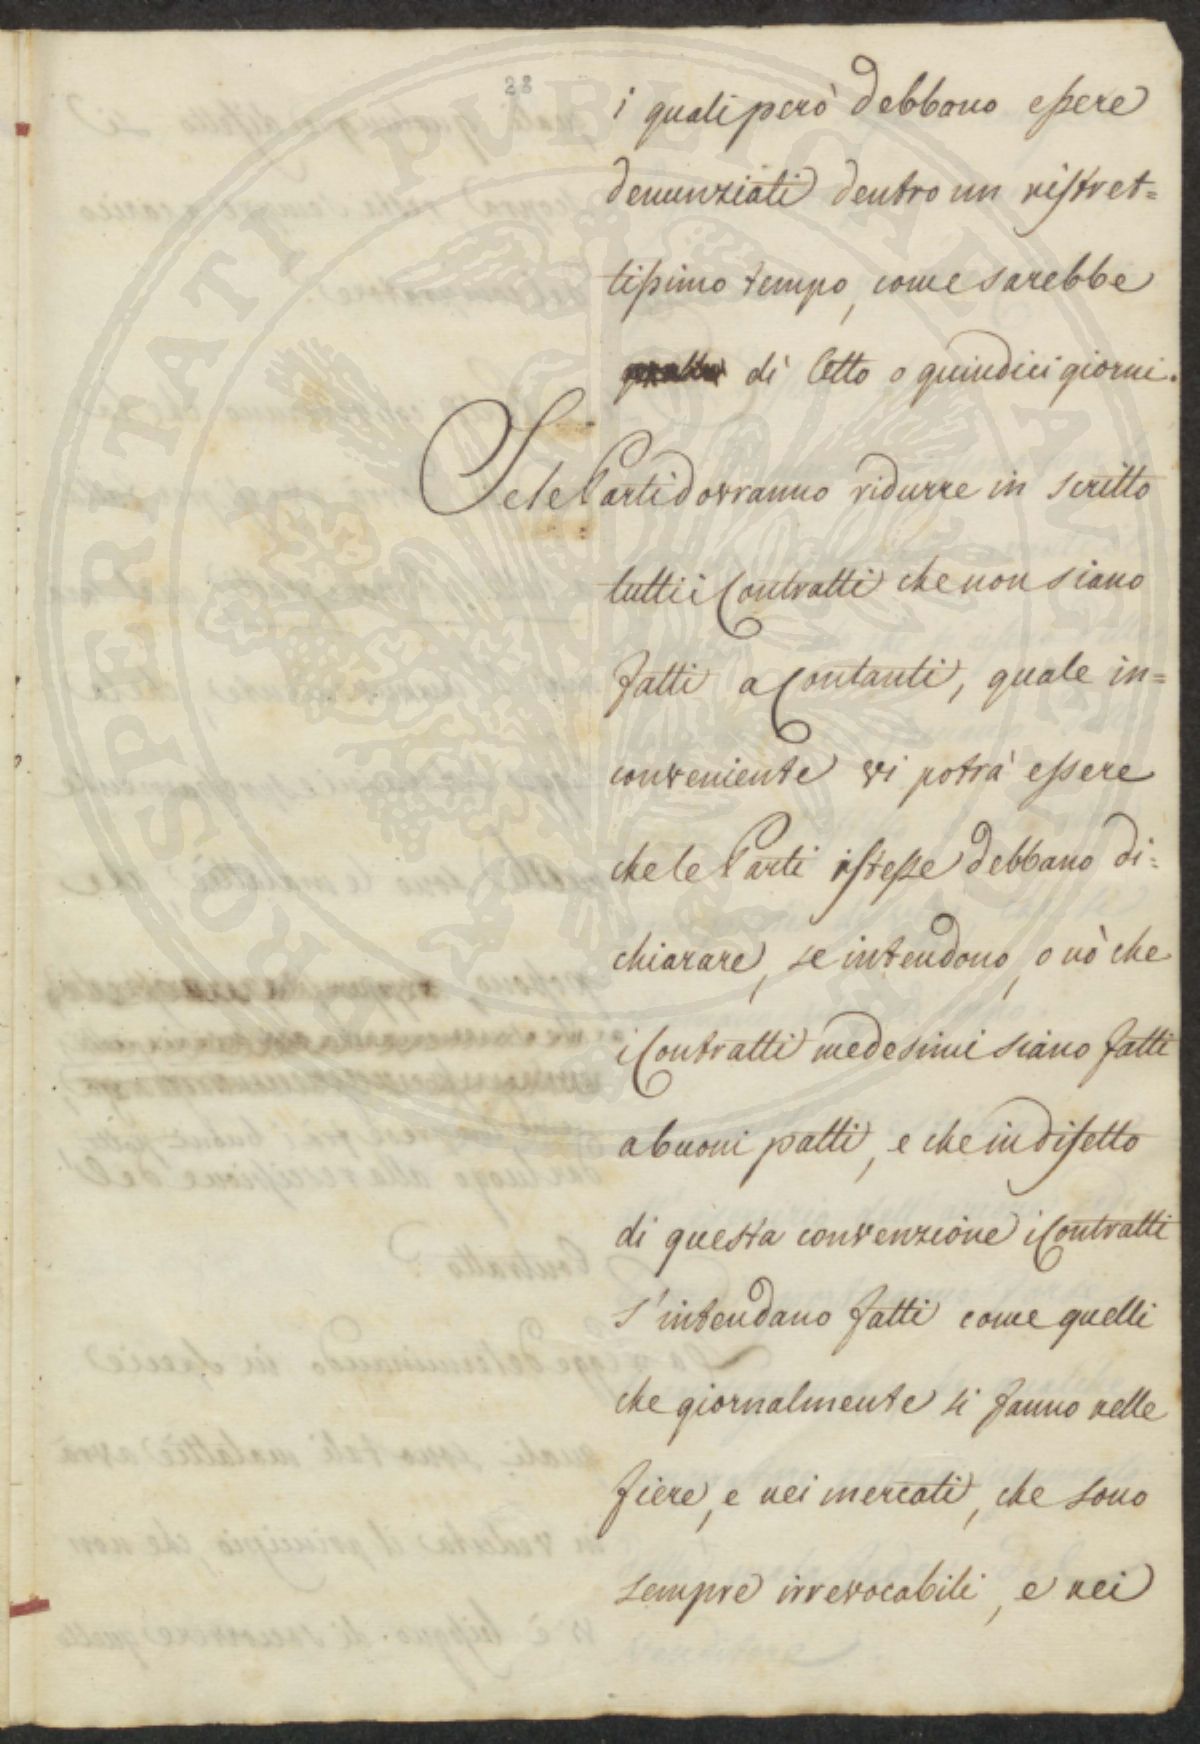 28
i quali però debbono essere
denunziati dentro un ristret=
tissimo tempo, come sarebbe
di Otto o quindici giorni.
Se le Parti dovranno ridurre in scritto
tutti i Contratti che non siano
fatti a Contanti, quale in=
conveniente vi potrà essere
che le Parti istesse debbano di=
chiarare, se intendono, o nò che
i Contratti medesimi siano fatti
a buoni patti, e che in difetto
di questa convenzione i Contratti
s'intendano fatti come quelli
che giornalmente si fanno nelle
fiere, e nei mercati, che sono
sempre irrevocabili, e nei
PROSPERITATI PUBLICAE AUGENDAE